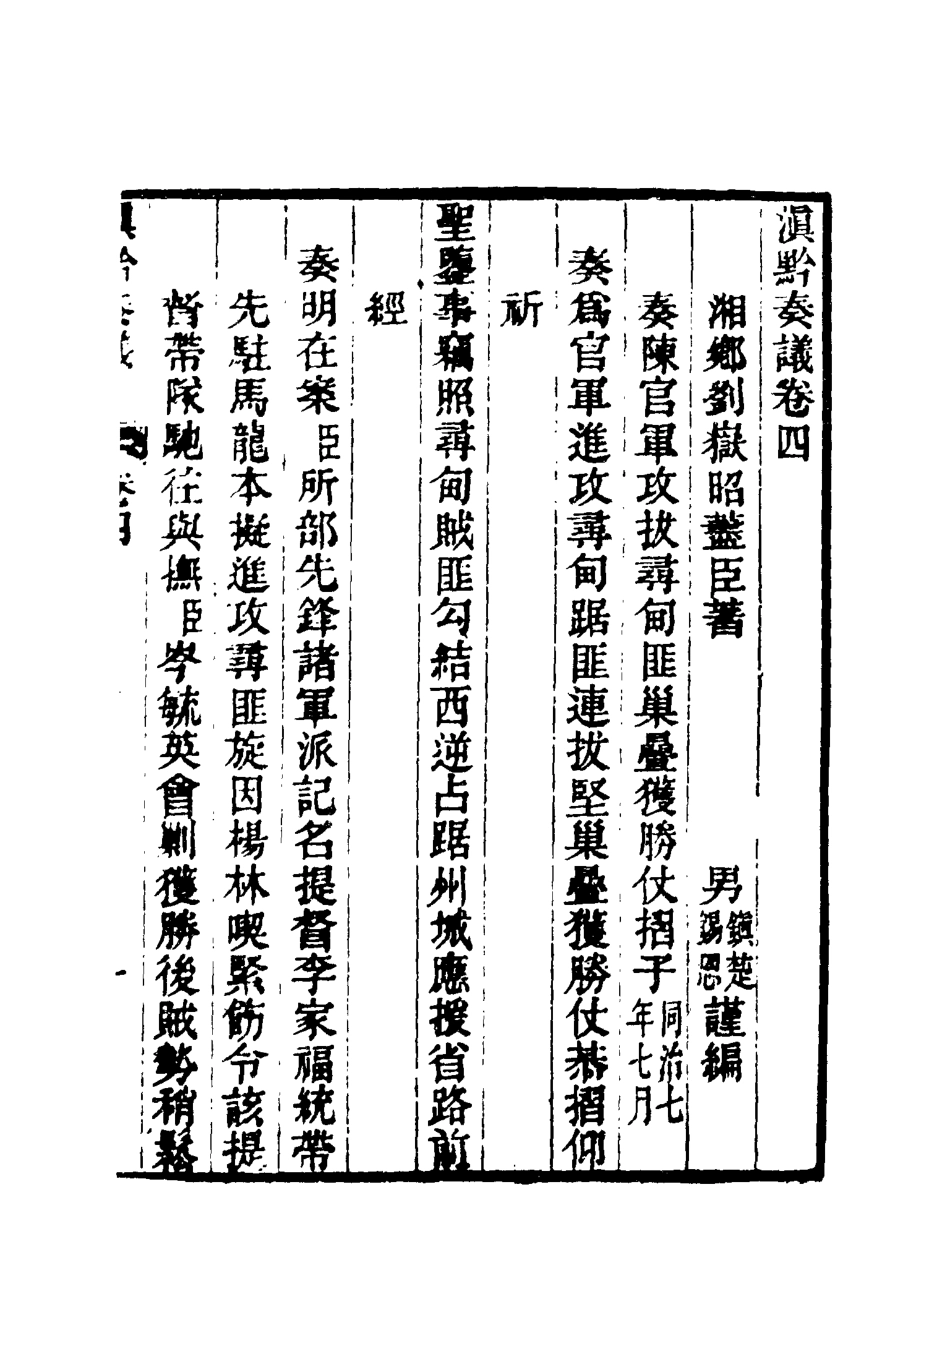 滇黔奏議卷四
湘鄉劉嶽昭藎臣著 男鎭楚錫恩謹編
奏陳官軍攻拔尋甸匪巢疊獲勝仗摺子同治七年七月
奏爲官軍進攻尋甸踞匪連拔堅巢疊獲勝仗恭摺仰
祈
聖鑒事竊照尋甸賊匪勾結西逆占踞州城應援省路前
經
奏明在案臣所部先鋒諸軍派記名提督李家福統帶
先駐馬龍本擬進攻尋匪旋因楊林喫緊飭令該提
督帶隊馳往與撫臣岑毓英會剿獲勝後賊勢稍鬆